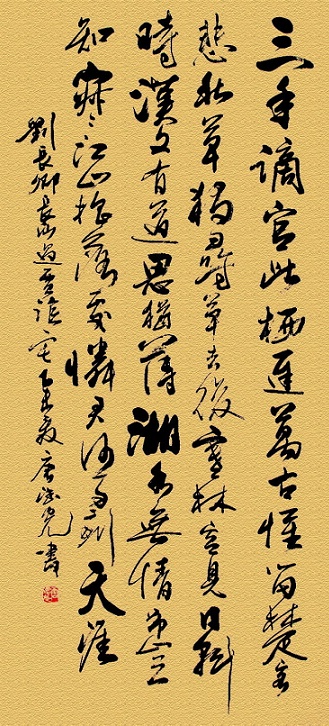 三年謫宦此栖遲萬古惟留楚客
悲秋草獨尋去後寒林空見日斜
時漢文有道恩猶薄湘水無情弔豈
知寂々江山搖落處憐君何事到天涯
劉長卿長沙過賈誼宅 夏唐光書